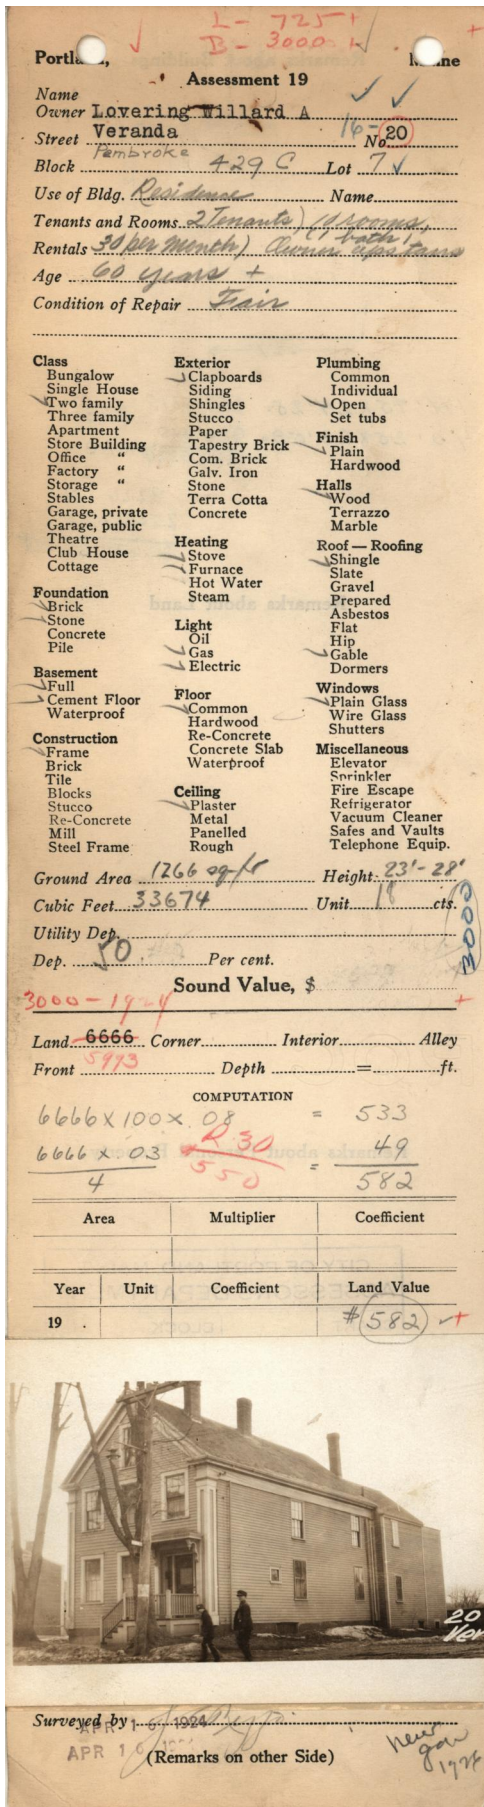 L - 725+
B - 3000+
Portland, Maine
Assessment 19
Name
Owner Lovering Willard A
Street Veranda 16- No. 20
Pembroke
Block 429 C Lot 7
Use of Bldg. Residence Name
Tenants and Rooms 2 Tenants) 10 rooms,
Rentals 30 (per month) Owner upstairs
1 bath
Age 60 years +
Condition of Repair Fair
Class
Bungalow
Single House
Two family
Three family
Apartment
Store Building
Office "
Factory "
Storage "
Stables
Garage, private
Garage, public
Theatre
Club House
Cottage
Foundation
Brick
Stone
Concrete
Pile
Basement
Full
Cement Floor
Waterproof
Construction
Frame
Brick
Tile
Blocks
Stucco
Re-Concrete
Mill
Steel Frame
Exterior
Clapboards
Siding
Shingles
Stucco
Paper
Tapestry Brick
Com. Brick
Galv. Iron
Stone
Terra Cotta
Concrete
Heating
Stove
Furnace
Hot Water
Steam
Light
Oil
Gas
Electric
Floor
Common
Hardwood
Re-Concrete
Concrete Slab
Waterproof
Ceiling
Plaster
Metal
Panelled
Rough
Plumbing
Common
Individual
Open
Set tubs
Finish
Plain
Hardwood
Halls
Wood
Terrazzo
Marble
Roof — Roofing
Shingle
Slate
Gravel
Prepared
Asbestos
Flat
Hip
Gable
Dormers
Windows
Plain Glass
Wire Glass
Shutters
Miscellaneous
Elevator
Sprinkler
Fire Escape
Refrigerator
Vacuum Cleaner
Safes and Vaults
Telephone Equip.
Ground Area 1266 sq-ft Height 23'-28'
Cubic Feet 33674 Unit 18 cts.
3000
Utility Dep.
Dep. 50 Per cent.
Sound Value, $
3000-1924 +
Land 6666 Corner Interior Alley
Front 5993 Depth = ft.
COMPUTATION
6666 x 100 x .08 = 533
6666 x 03 = 49
4 582
R 30
550
Area Multiplier Coefficient
Year Unit Coefficient Land Value
19 . $ 582 +
20
Ver
Surveyed by
APR 16 1924
APR 16 1924
(Remarks on other Side)
new
gar
1926